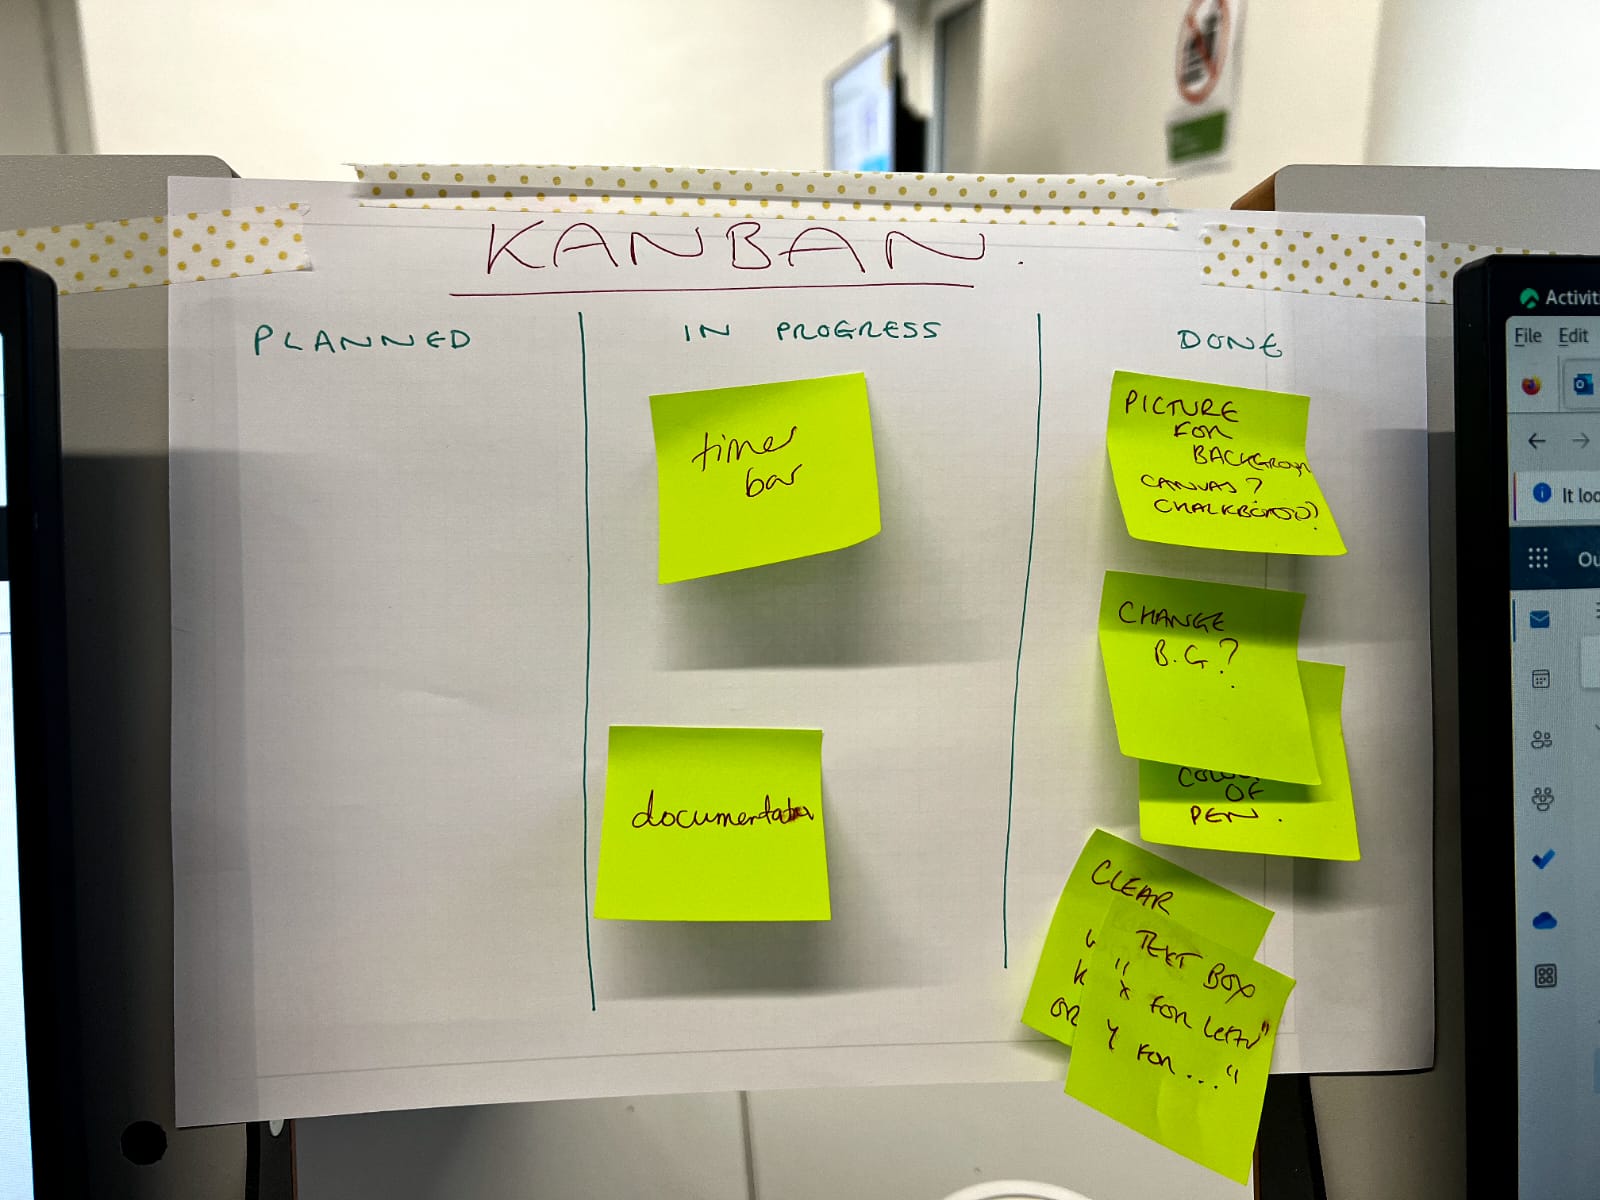 KANBAN.
PLANNED
IN PROGRESS
DONE
timer
bar
documentation
PICTURE
FOR
BACKGROUN
CANVAS?
CHALKBOARD?
CHANGE
B.G?
OF
PEN.
CLEAR
K
OR
TEXT BOX
"X FOR
Y FOR..."
Activit
File Edit
It loo
Ou